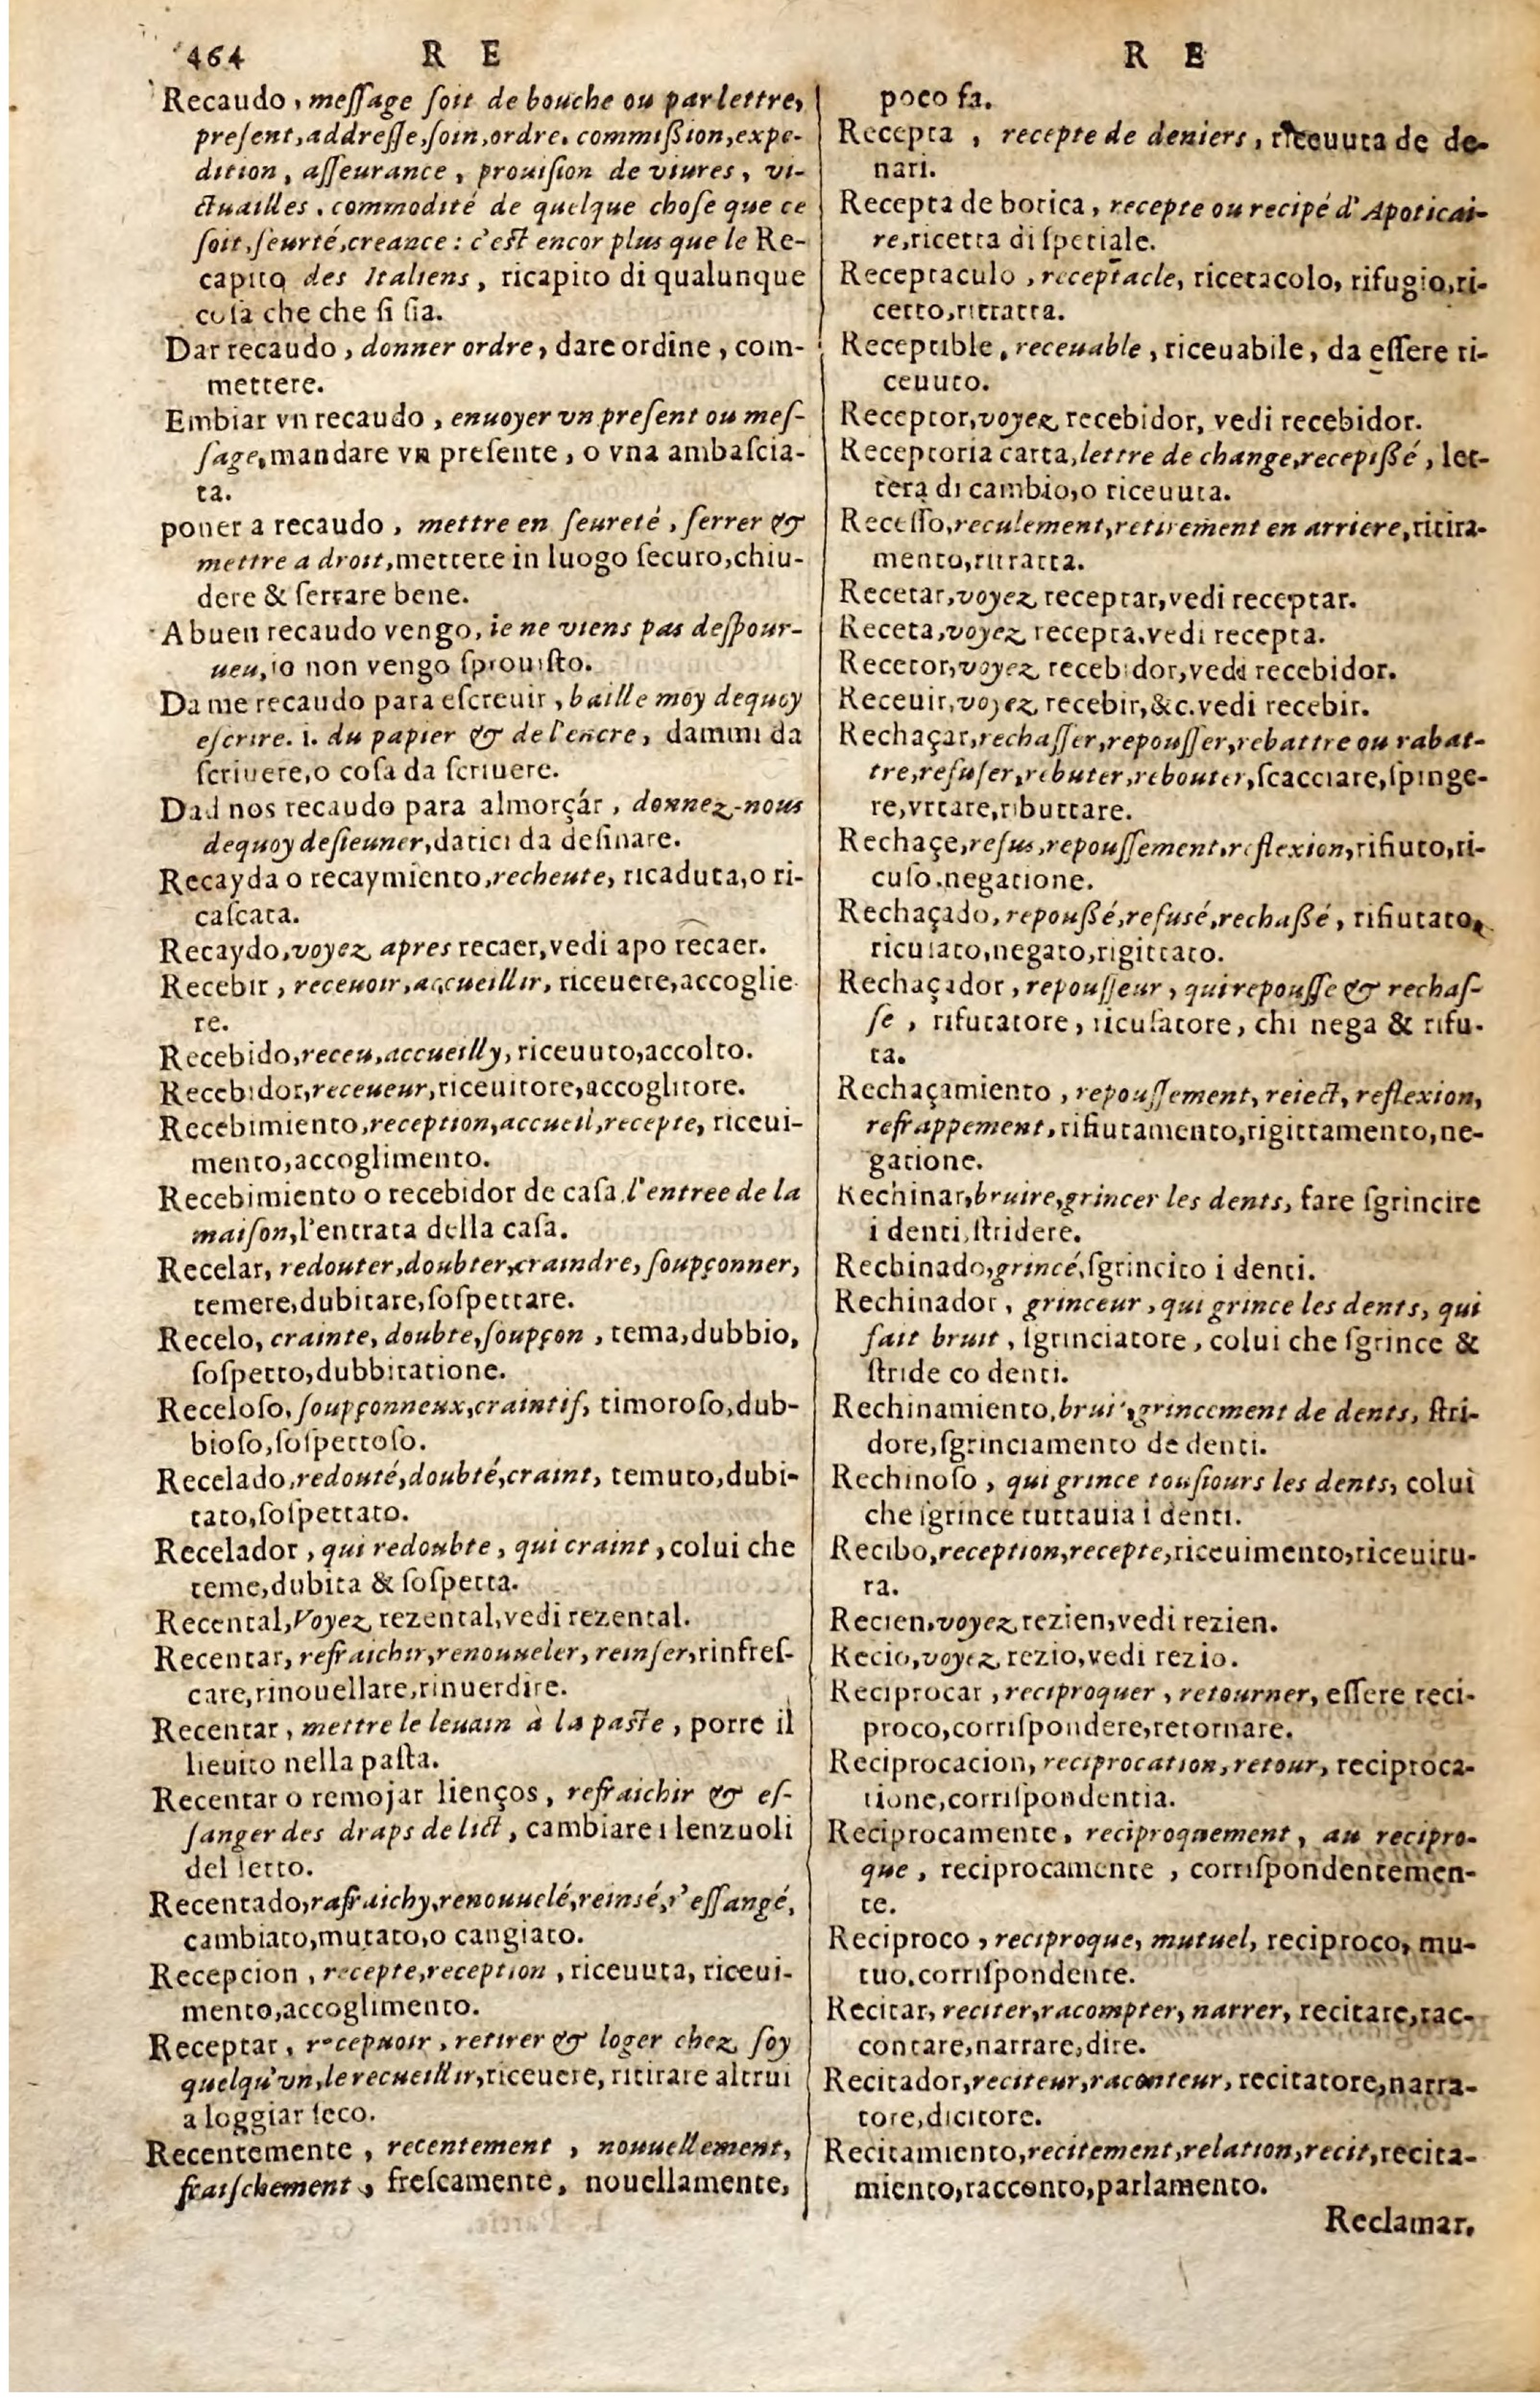 464 R E
R E
Recaudo, meſſage ſoit de bouche ou par lettre,
preſent, addreſſe, ſoin, ordre, commißion, expe-
dition, aſſeurance, prouiſion de viures, vi-
ctuailles, commodité de quelque choſe que ce
ſoit, ſeurté, creance: c'eſt encor plus que le Re-
capito des Italiens, ricapito di qualunque
coſa che che ſi ſia.
Dar recaudo, donner ordre, dare ordine, com-
mettere.
Embiar vn recaudo, enuoyer vn preſent ou meſ-
ſage, mandare vn preſente, o vna ambaſcia-
ta.
poner a recaudo, mettre en ſeureté, ſerrer &
mettre a droit, mettere in luogo ſecuro, chiu-
dere & ſerrare bene.
A buen recaudo vengo, ie ne viens pas deſpour-
ueu, io non vengo ſprouiſto.
Da me recaudo para eſcreuir, baille moy dequoy
eſcrire. i. du papier & de l'encre, dammi da
ſcriuere, o coſa da ſcriuere.
Dad nos recaudo para almorçár, donnez-nous
dequoy deſieuner, datici da deſinare.
Recayda o recaymiento, recheute, ricaduta, o ri-
caſcata.
Recaydo, voyez apres recaer, vedi apo recaer.
Recebir, receuoir, accueillir, riceuere, accoglie
re.
Recebido, receu, accueilly, riceuuto, accolto.
Recebidor, receueur, riceuitore, accoglitore.
Recebimiento, reception, accueil, recepte, riceui-
mento, accoglimento.
Recebimiento o recebidor de caſa, l'entree de la
maiſon, l'entrata della caſa.
Recelar, redouter, doubter, craindre, ſoupçonner,
temere, dubitare, ſoſpettare.
Recelo, crainte, doubte, ſoupçon, tema, dubbio,
ſoſpetto, dubbitatione.
Receloſo, ſoupçonneux, craintif, timoroſo, dub-
bioſo, ſoſpettoſo.
Recelado, redouté, doubté, craint, temuto, dubi-
tato, ſoſpettato.
Recelador, qui redoubte, qui craint, colui che
teme, dubita & ſoſpetta.
Recental, Voyez rezental, vedi rezental.
Recentar, refraichir, renouueler, reinſer, rinfreſ-
care, rinouellare, rinuerdire.
Recentar, mettre le leuain à la paſte, porre il
lieuito nella paſta.
Recentar o remojar lienços, refraichir & eſ-
ſanger des draps de lict, cambiare i lenzuoli
del letto.
Recentado, rafraichy, renouuelé, reinsé, r'eſſangé,
cambiato, mutato, o cangiato.
Recepcion, recepte, reception, riceuuta, riceui-
mento, accoglimento.
Receptar, recepuoir, retirer & loger chez ſoy
quelqu'vn, le recueillir, riceuere, ritirare altrui
a loggiar ſeco.
Recentemente, recentement, nouuellement,
fraiſchement, freſcamente, nouellamente,
poco fa.
Recepta, recepte de deniers, riceuuta de de-
nari.
Recepta de botica, recepte ou recipé d'Apoticai-
re, ricetta di ſpetiale.
Receptaculo, receptacle, ricetacolo, rifugio, ri-
cetto, ritratta.
Receptible, receuable, riceuabile, da eſſere ri-
ceuuto.
Receptor, voyez recebidor, vedi recebidor.
Receptoria carta, lettre de change, recepißé, let-
tera di cambio, o riceuuta.
Receſſo, reculement, retirement en arriere, ritira-
mento, ritratta.
Recetar, voyez receptar, vedi receptar.
Receta, voyez recepta, vedi recepta.
Recetor, voyez recebidor, vedi recebidor.
Receuir, voyez recebir, &c. vedi recebir.
Rechaçar, rechaſſer, repouſſer, rebattre ou rabat-
tre, refuſer, rebuter, rebouter, ſcacciare, ſpinge-
re, vrtare, ributtare.
Rechaçe, refus, repouſſement, reflexion, rifiuto, ri-
cuſo, negatione.
Rechaçado, repoußé, refusé, rechaßé, rifiutato,
ricuſato, negato, rigittato.
Rechaçador, repouſſeur, qui repouſſe & rechaſ-
ſe, rifutatore, ricuſatore, chi nega & rifu-
ta.
Rechaçamiento, repouſſement, reiect, reflexion,
refrappement, rifiutamento, rigittamento, ne-
gatione.
Rechinar, bruire, grincer les dents, fare ſgrincire
i denti, ſtridere.
Rechinado, grincé, ſgrincito i denti.
Rechinador, grinceur, qui grince les dents, qui
fait bruit, ſgrinciatore, colui che ſgrince &
ſtride co denti.
Rechinamiento, bruit, grincement de dents, ſtri-
dore, ſgrinciamento de denti.
Rechinoſo, qui grince touſiours les dents, colui
che ſgrince tuttauia i denti.
Recibo, reception, recepte, riceuimento, riceuitu-
ra.
Recien, voyez rezien, vedi rezien.
Recio, voyez rezio, vedi rezio.
Reciprocar, reciproquer, retourner, eſſere reci-
proco, corriſpondere, retornare.
Reciprocacion, reciprocation, retour, reciproca-
tione, corriſpondentia.
Reciprocamente, reciproquement, au recipro-
que, reciprocamente, corriſpondentemen-
te.
Reciproco, reciproque, mutuel, reciproco, mu-
tuo, corriſpondente.
Recitar, reciter, racompter, narrer, recitare, rac-
contare, narrare, dire.
Recitador, reciteur, raconteur, recitatore, narra-
tore, dicitore.
Recitamiento, recitement, relation, recit, recita-
miento, racconto, parlamento.
Reclamar,